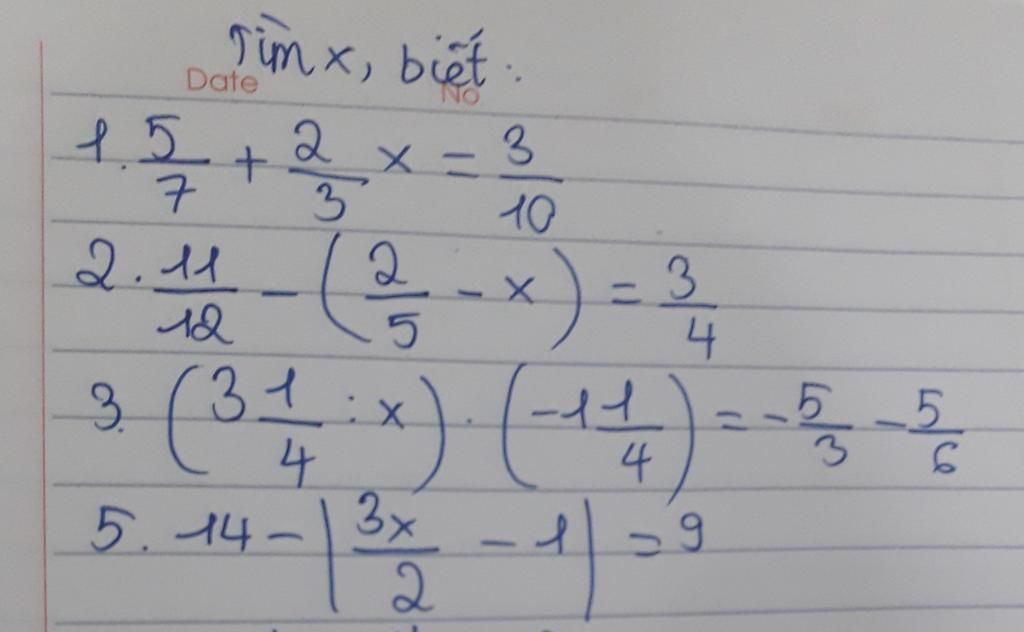 Tìm x, biết:
Date No
1. 5/7 + 2/3 x = 3/10
2. 11/12 - (2/5 - x) = 3/4
3. (3 1/4 : x) . (-1 1/4) = -5/3 - 5/6
5. 14 - |3x/2 - 1| = 9